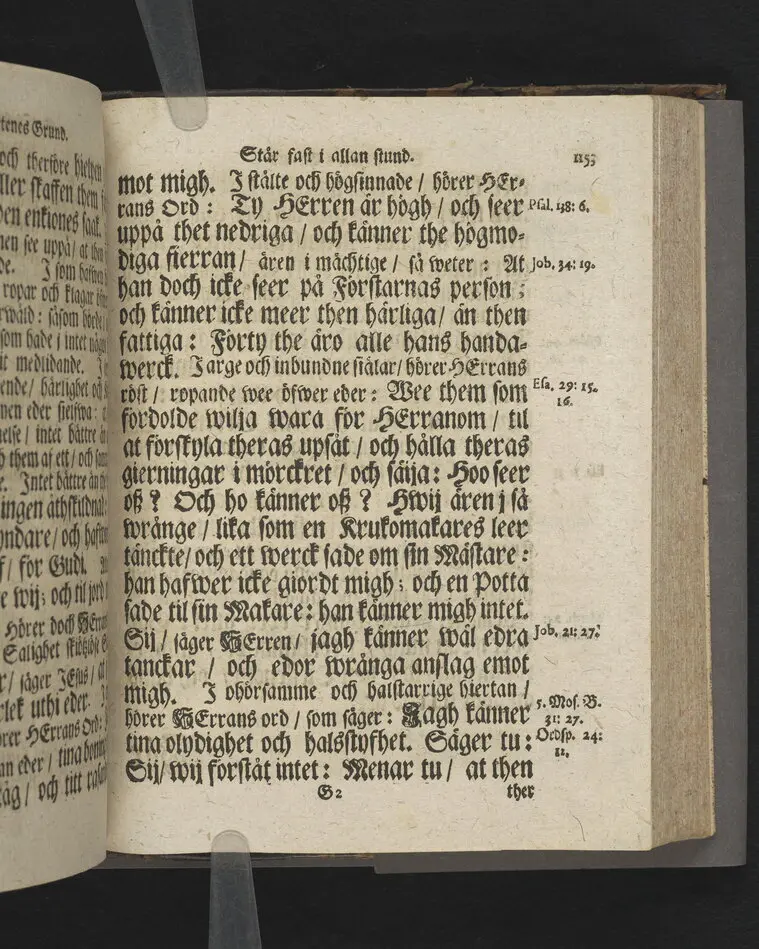 tenes Grund.
och therföre
ller skaffen them
en enkiones saak.
men see uppå/ at
de. J som
ropar och klagar
wåld: såsom
som hade j intet
it medlidande.
ende/ härlighet
men eder sielfwa:
else/ intet bättre
them af ett/ och
e. Intet bättre än
ingen åthskildna
yndare/ och
f/ för Gudi.
e wij; och til jord
Hörer doch
Salighet
r/ säger JEsus/
lek uthi eder.
rer HErrans Ord:
an eder/ tina
åg/ och titt
Står fast i allan stund. 115
mot migh. J stålte och högsinnade / hörer HEr-
rans Ord: Ty HErren är högh / och seer Psal. 138: 6.
uppå thet nedriga / och känner the högmo-
diga fierran / ären i mächtige / så weter: At Job. 34: 19.
han doch icke seer på Förstarnas person;
och känner icke meer then härliga/ än then
fattiga: Förty the äro alle hans handa-
werck. J arge och inbundne siälar/ hörer HErrans
röst / ropande wee öfwer eder: Wee them som Esa. 29: 15.
16.
fördolde wilja wara för HErranom / til
at förskyla theras upsåt / och hålla theras
gierningar i mörckret / och säija: Hoo seer
oß? Och ho känner oß? Hwij ären j så
wränge / lika som en Krukomakares leer
tänckte/ och ett werck sade om sin Mästare:
han hafwer icke giordt migh; och en Potta
sade til sin Makare: han känner migh intet.
Sij / säger HErren / jagh känner wäl edra Job. 21: 27.
tanckar / och edor wränga anslag emot
migh. J ohörsamme och halstarrige hiertan /
hörer HErrans ord / som säger: Jagh känner 5. Mos. B.
31: 27.
tina olydighet och halsstyfhet. Säger tu: Ordsp. 24:
12.
Sij/ wij förståt intet: Menar tu / at then
G 2 ther